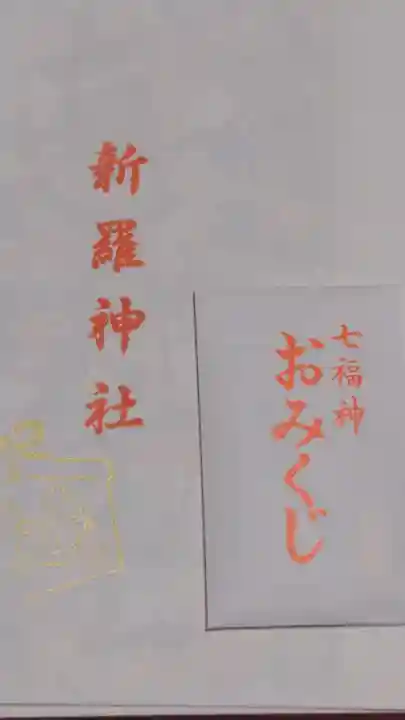 新羅神社
七福神
おみくじ